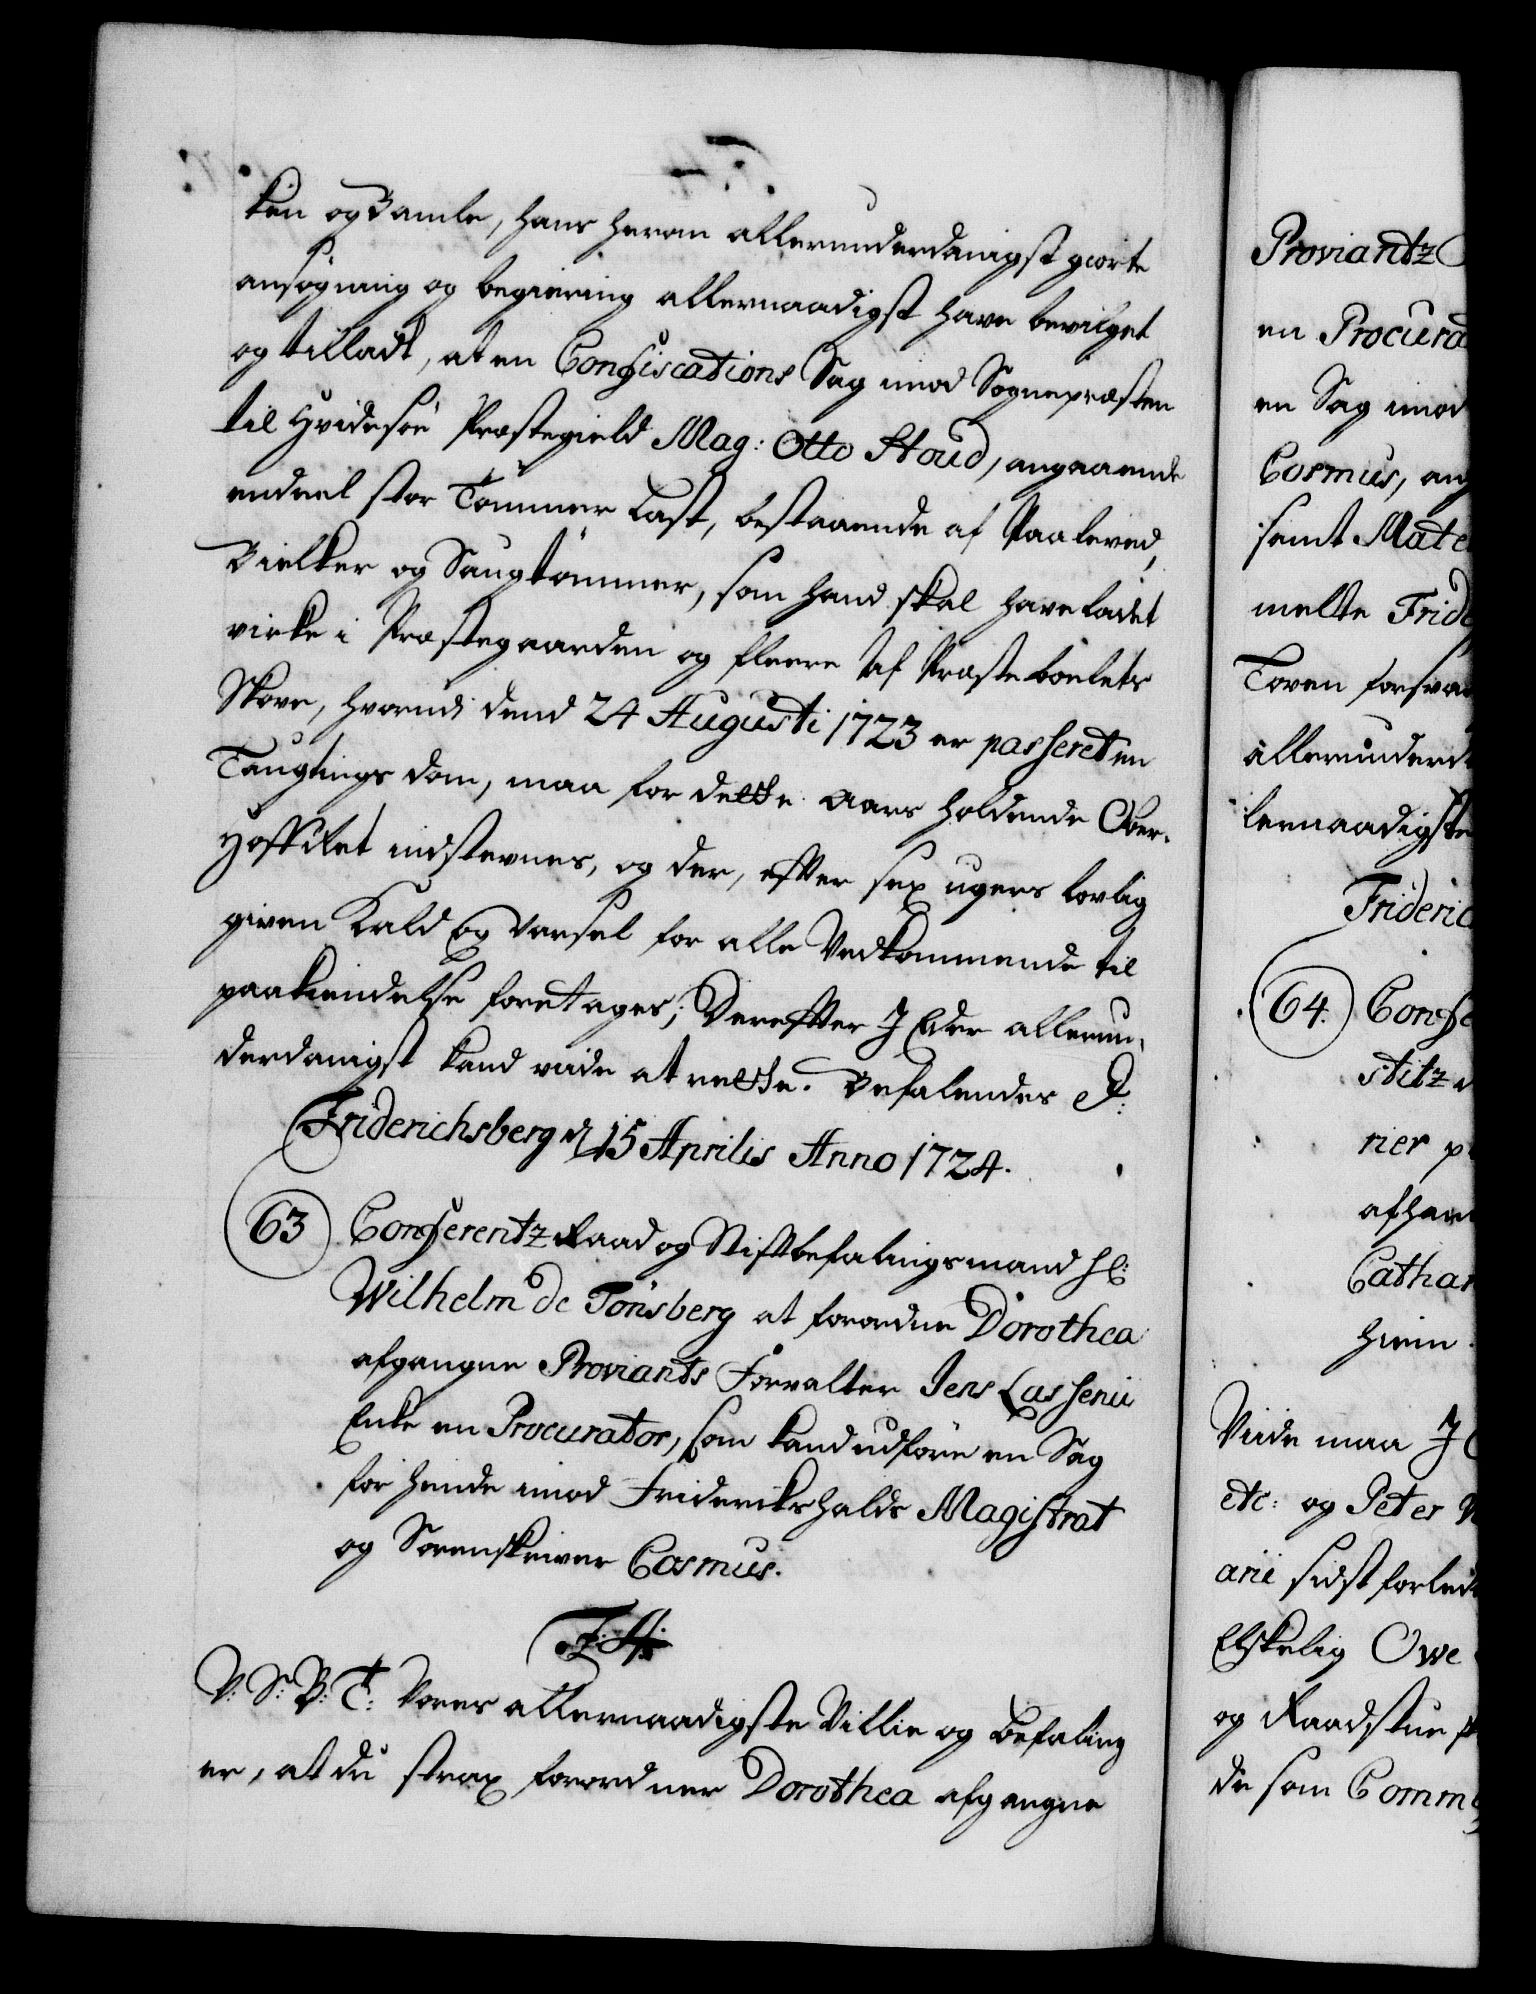 ken og Bamle, hans herom allerunderdanigst giorte
ansøgning og begiering allernaadigst have bevilget
og tilladt, at en Confiscations Sag imod Sognepræsten
til Hvidesøe Præstegield Mag: Otto Stoud, angaaende
endeel stor Tømmer Last, bestaaende af Paaleved,
Bielker og Saugtømmer, som hand skal have ladet
virke i Præstegaarden og fleere af Præsteboelets
Skove, hvorudi dend 24 Augusti 1723 er passeret en
Laugtings dom, maa for dette Aars holdende Ober-
Hoff Ret indstevnes, og der, efter sex ugers lovlig
given Kald og Varsel for alle Vedkommende til
paakiendelse foretages; Derefter I Eder allerun-
derdanigst kand viide at rette. Befalendes &:
Friderichsberg d 15 Aprilis Anno 1724.
63 Conferentz Raad og Stiftbefalingsmand Hl:
Wilhelm de Tønsberg at forordne Dorothea
afgangne Proviants Forvalter Jens Lassenii
Enke en Procurator, som kand udføre en Sag
for hende imod Frideriks halds Magistrat
og Sorenskriver Cosmus.
F: 4:
V: S: B: T: Vores allernaadigste Villie og befaling
er, at du strax forordner Dorothea afgangne
Proviantz
en Procurat
en Sag imod
Cosmus, ang
samt Mate
melte Fride
Loven forsva
allerunderd
lernaadigste
Frideric
64. Confe
stitz
rier p
afhan
Cathar
hiem
Viide maa I
etc: og Peter
arii sidstforled
Elskelig Owe
og Raadstue
de som Comm